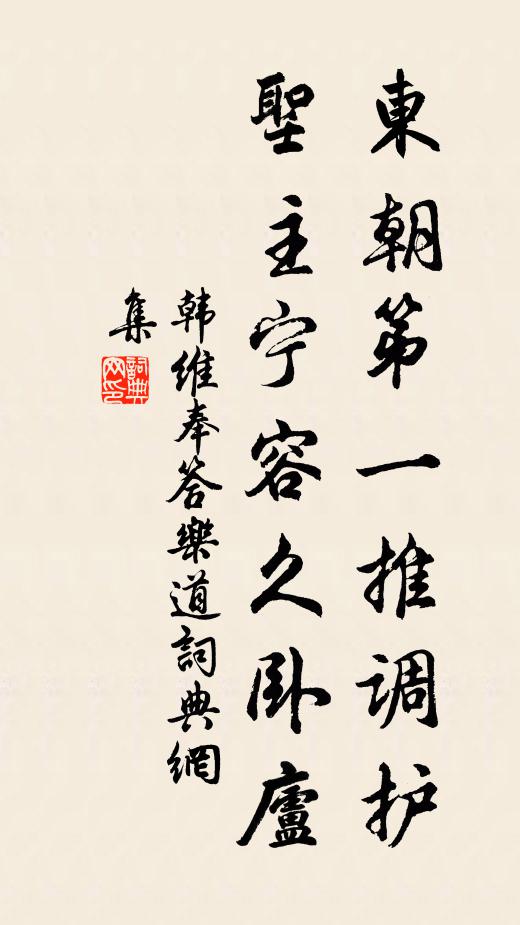 東朝第一推调护
聖主宁容久卧廬
韩维奉答樂道詞典網
集
詞典网印